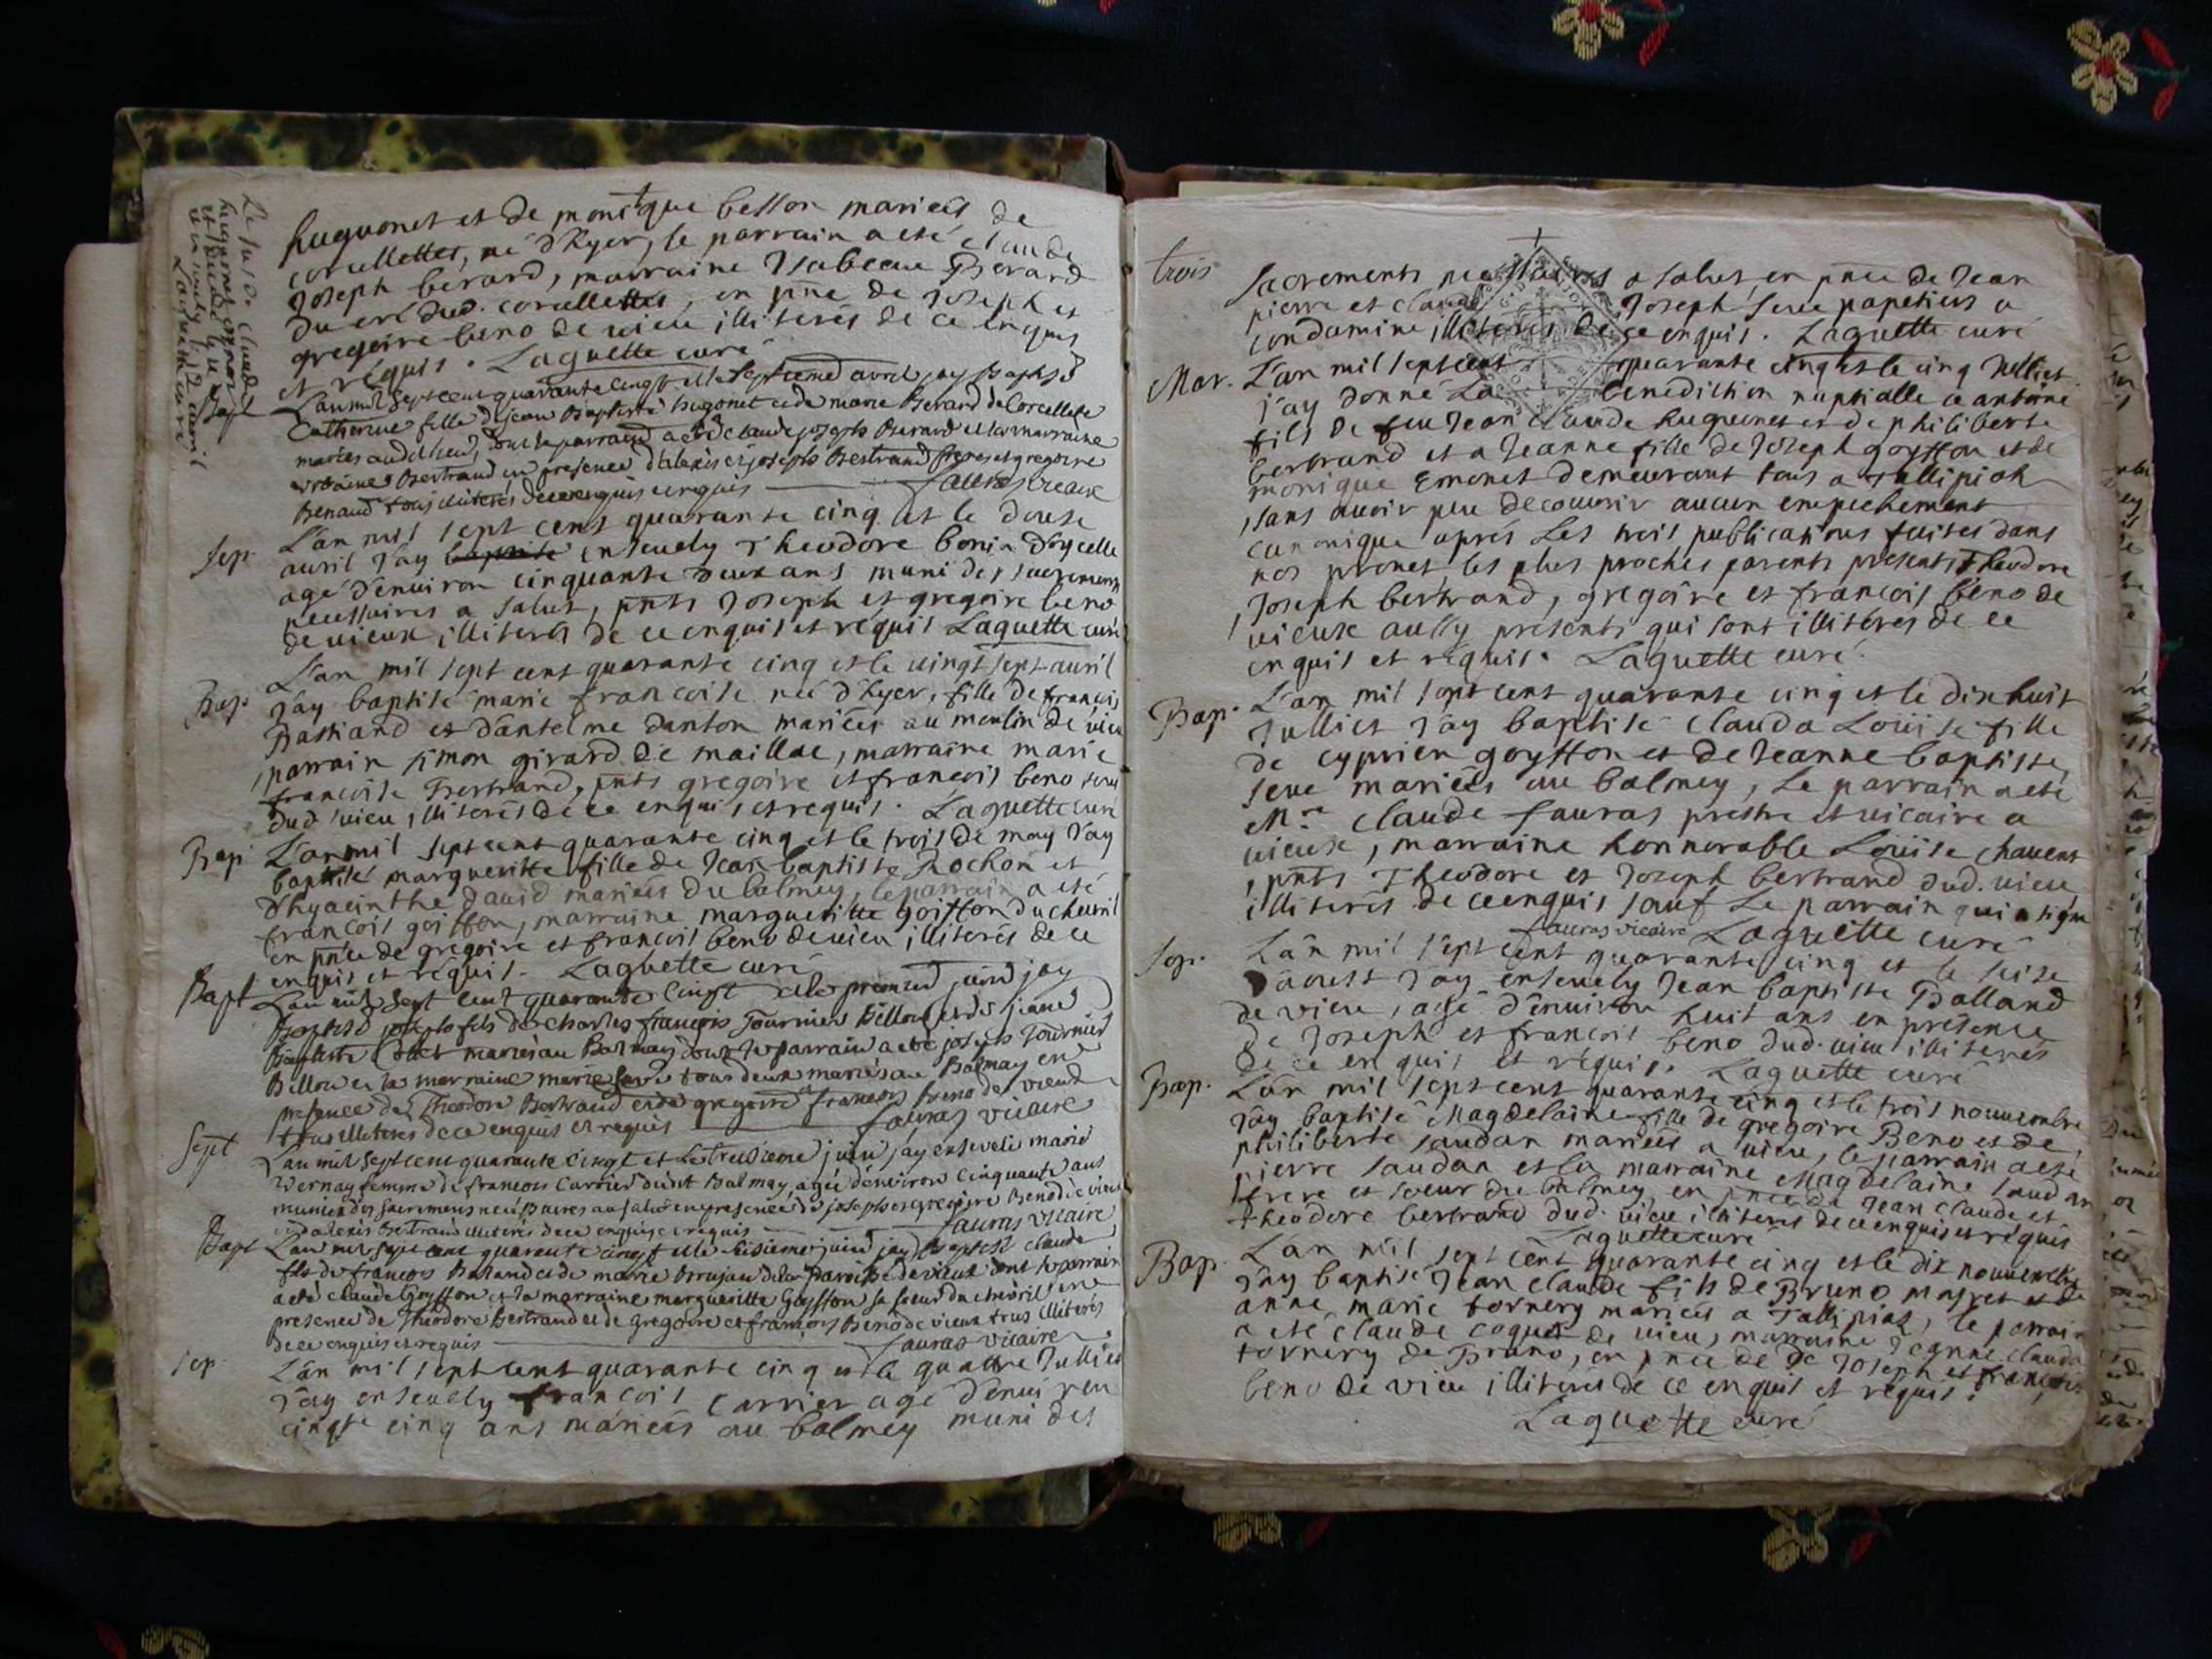 huguonet et de monique besson mariéés de
corcellettes, né d'hyer, le parrain a esté claude
Joseph berard, marraine Isabeau Berard
dud. corcellettes, en pnce de Joseph et
gregoire beno de vieu illiterés de ce enquis
et requis. Laguette curé
Bapt L'an mil sept cent quarante cinqt et le septieme avril jay Baptisé
Catherine fille de jean Baptiste hugonet et de marie Berard de Corcellete
mariés audit lieu, dont le parrain a eté claude joseph Berard et la marraine
Bertrand en presence d'alexis et joseph Bertrand freres et gregoire
Benaud tous illiterés de ce enquis et requis sauras vicaire
Sep. L'an mil sept cent quarante cinq et le douse
auril J'ay baptisé ensevely Theodore bonin d'oycelle
agé d'enuiron cinquante deux ans muni des sacrements
necessaires a salut, pnts Joseph et gregoire beno
de uieux illiterés de ce enquis et requis Laguette curé
L'an mil sept cent quarante cinq et le uingt sept auril
Bap. J'ay baptisé marie francoise née d'hyer, fille de francois
Bastiand et d'antelme danton mariéés au moulin de uieu
parrain simon girard de maillac, marraine marie
francoise Bertrand, pnts gregoire et francois beno
dud uieu illiterés de ce enquis et requis. Laguette curé
Bap. L'an mil sept cent quarante cinq et le trois de may J'ay
baptisé margueritte fille de Jean baptiste Rochon et
d'hyacinthe dauid mariéés du balmey, le parrain a esté
francois goiffon, marraine margueritte goiffon du cheuril
en pnce de gregoire et francois beno de uieu illiterés de ce
enquis et requis. Laguette curé
Bapt L'an mil sept cent quarante cinqt et le premier juin jay
Baptisé joseph fils de charles francois Tournier Billon et de jeanne
Baptiste mariés au Balmay dont le parrain a eté joseph Tournier
Billon et la marraine marie tous deux mariés au Balmay en
presence de Theodore Bertrand et de gregoire et francois Beno de vieux
tous illiterés de ce enquis et requis sauras vicaire
Sept L'an mil sept cent quarante cinqt et le treisieme juin jay enseveli marie
Vernay femme de francois Carrier dudit Balmay, agée d'environ cinquante ans
munie des sacremens necessaires au salut en presence de joseph et gregoire Beno de vieux
et d'alexis Bertrand illiterés de ce enquis et requis sauras vicaire
Bapt L'an mil sept cent quarante cinqt et le seisieme juin jay Baptisé claude
fils de francois Balland et de marie de la Paroisse de vieux dont le parrain
a eté claude Goyffon et la marraine margueritte Goyffon sa soeur du chevril en
presence de Theodore Bertrand et de gregoire et francois Beno de vieux tous illiterés
de ce enquis et requis sauras vicaire
Sep. L'an mil sept cent quarante cinq et le quattre Julliet
J'ay ensevely francois carrier agé d'enuiron
cinqte cinq ans mariéés au balmey muni des
Le fils de claude
Laguette curé
trois
sacrements necessaires a salut, en pnce de Jean
pierre et claude Joseph seve papetiers a
condamine illiterés de ce enquis. Laguette curé
Mar. L'an mil sept cent quarante cinq et le cinq Julliet
j'ay donné La benediction nuptialle a antoine
fils de feu Jean claude huguonet et de philiberte
bertrand et a Jeanne fille de Joseph goyffon et de
monique Emonet demeurant tous a Tallipiat
sans auoir peu decouurir aucun empechement
canonique aprés Les trois publications faites dans
nos prones, les plus proches parents presents, Theodore
Joseph bertrand, gregoire et francois beno de
uieux aussy presents qui sont illiterés de ce
enquis et requis. Laguette curé
Bap. L'an mil sept cent quarante cinq et le dixhuit
Julliet J'ay baptisé clauda Louise fille
de cyprien goyffon et de Jeanne baptiste
seve mariéés au balmey, Le parrain a esté
Mre claude sauras prestre et uicaire a
uieux, marraine honnorable Louise chavent
pnts Theodore et Joseph bertrand dud. uieu
illiterés de ce enquis sauf Le parrain qui a signé
sauras vicaire Laguette curé
Sep. L'an mil sept cent quarante cinq et le seise
d'aoust J'ay ensevely Jean baptiste Balland
de vieu, agé d'enuiron huit ans en presence
de Joseph et francois beno dud. uieu illiterés
de ce enquis et requis. Laguette curé
Bap. L'an mil sept cent quarante cinq et le trois nouuembre
J'ay baptisé Magdelaine fille de gregoire Beno et de
philiberte saudan mariéés a uieu, le parrain a esté
pierre saudan et la marraine Magdelaine saudan
frere et soeur du balmey, en pnce de Jean claude et
theodore bertrand dud. uieu illiterés de ce enquis et requis
Laguette curé
Bap. L'an mil sept cent quarante cinq et le dix nouuembre
J'ay baptisé Jean claude fils de Bruno et de
anne marie tornery mariéés a Tallipiat, le parrain
a esté claude coquet de uieu, marraine Jeanne clauda
tornery de Bruno, en pnce de Joseph et francois
beno de vieu illiterés de ce enquis et requis.
Laguette curé